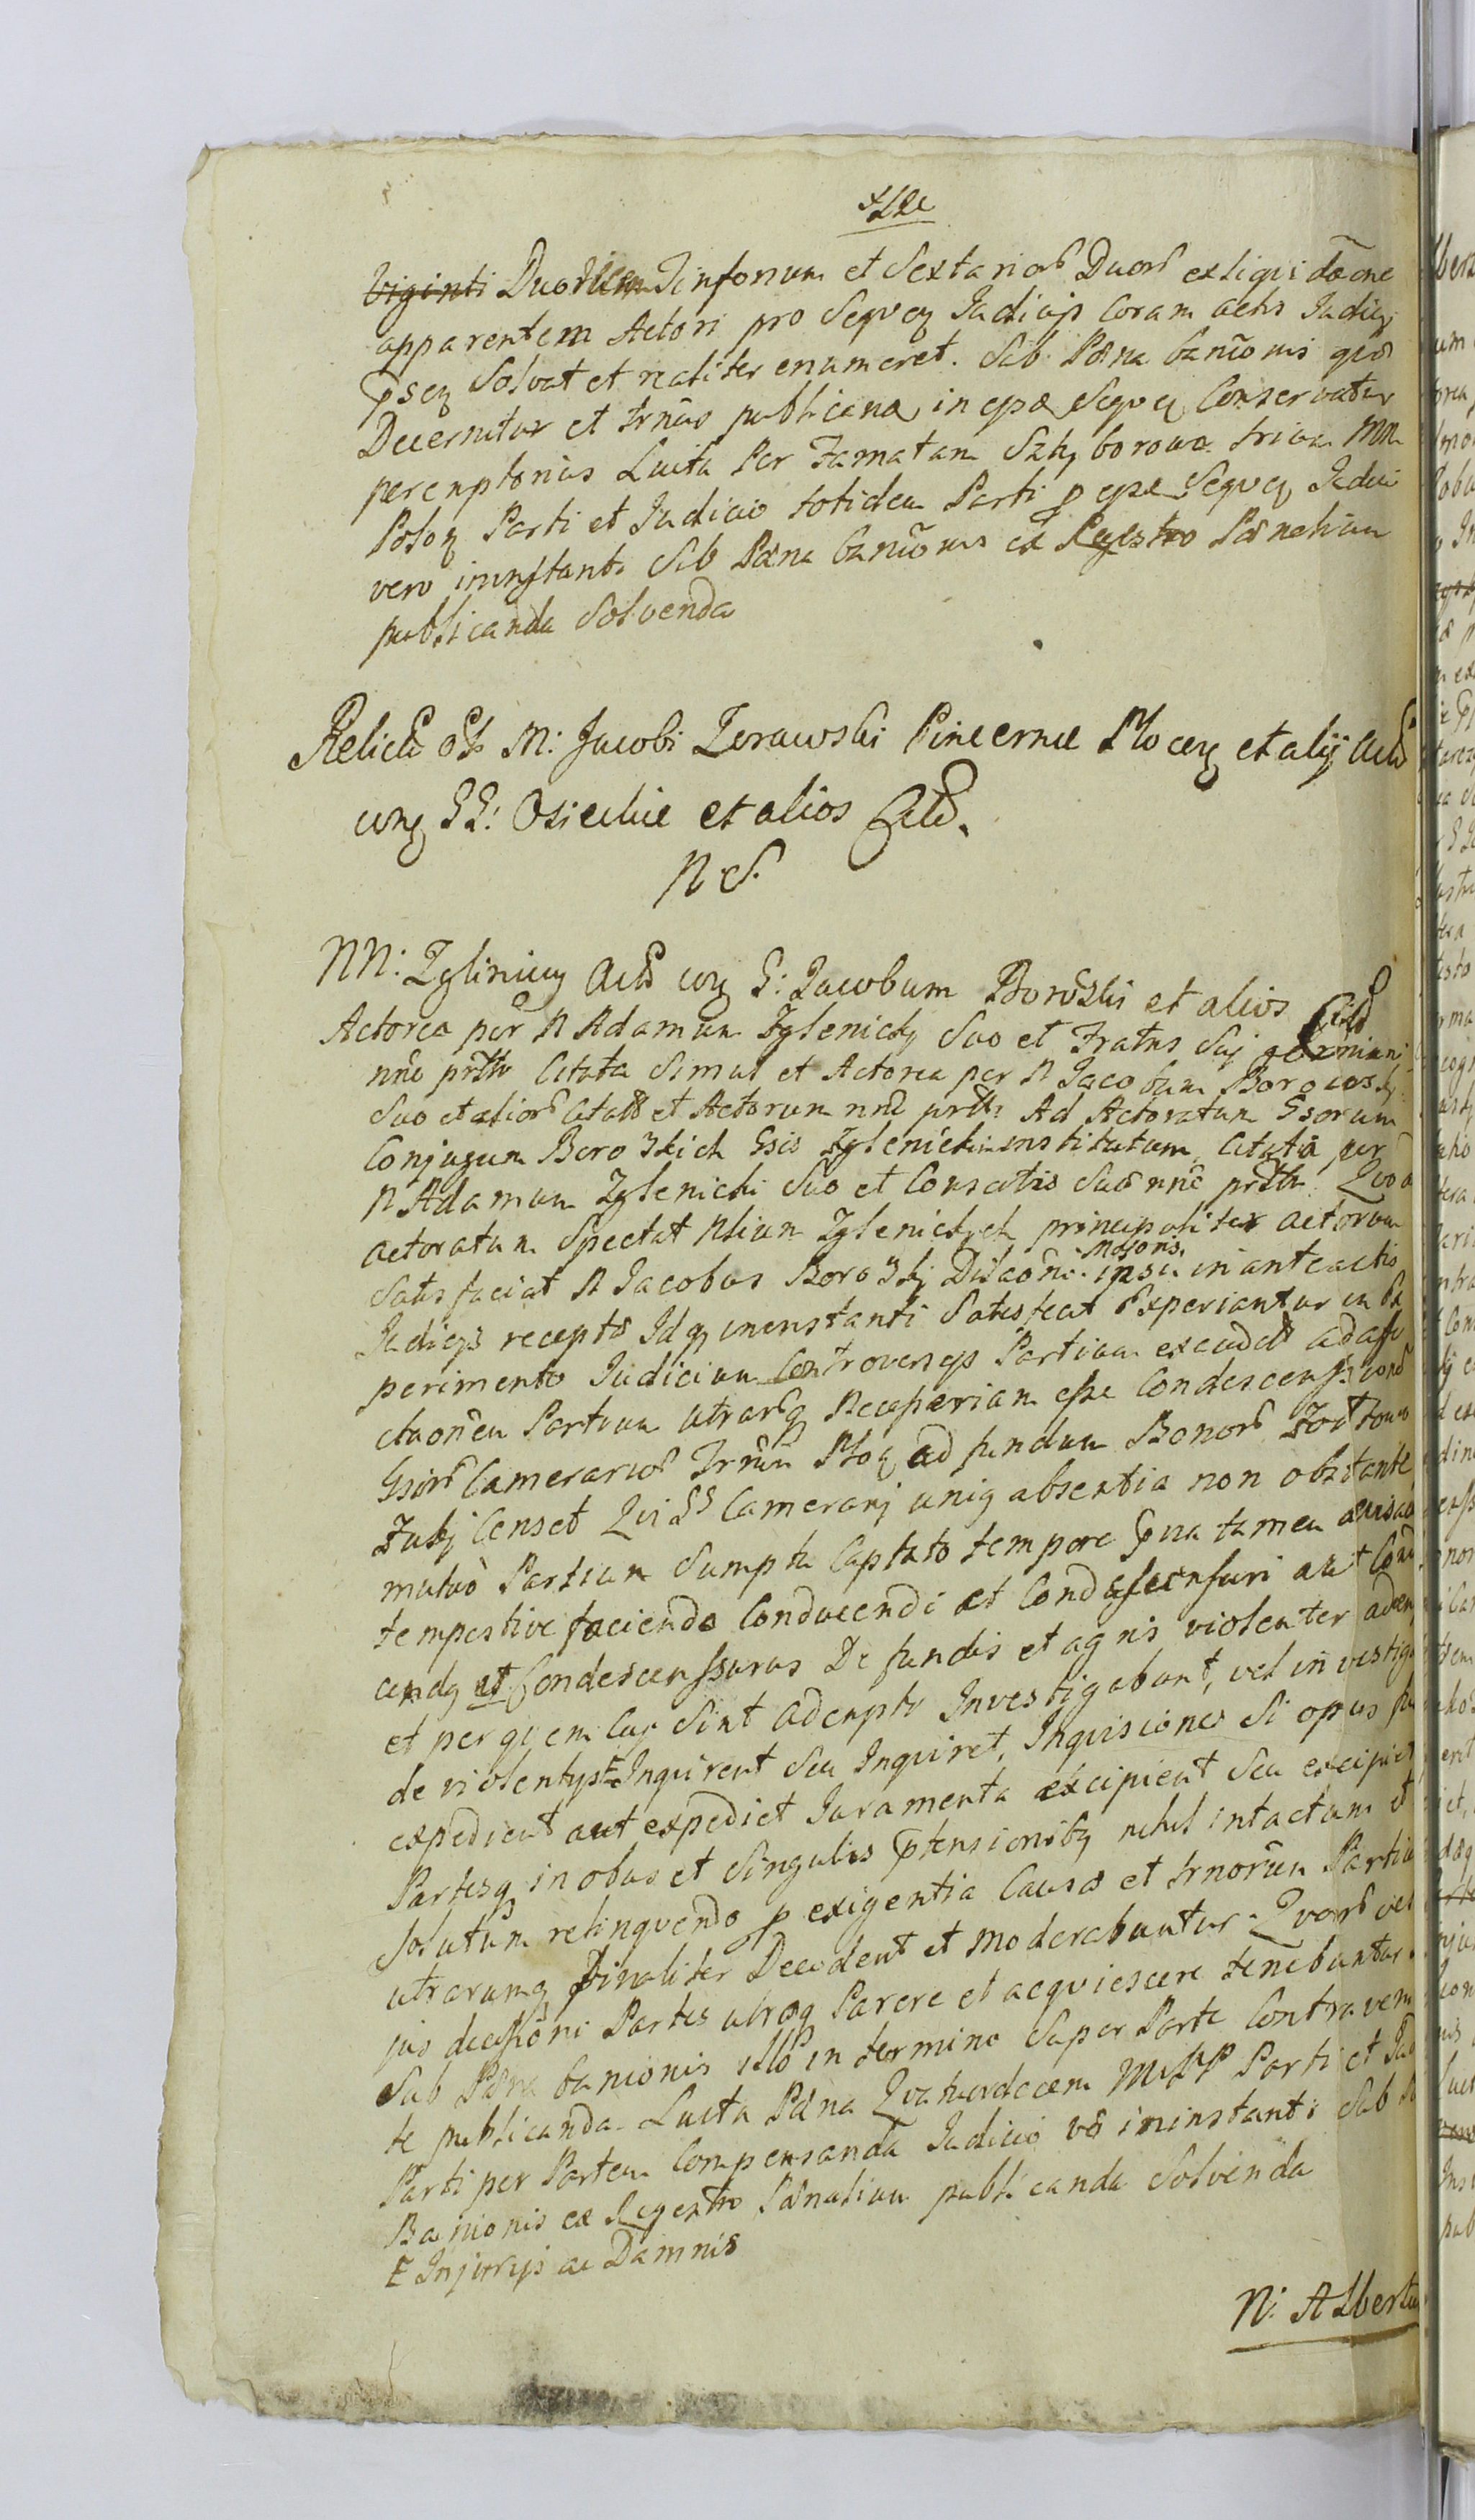 Viginti Duorum Tinfonum et Sextarior Duor ex liquidaone
apparentem Actori pro Seqvcy Judicijs Coram actis Judicy
psey Solvat et realiter enumeret. Sub Pæna banionis qua
Decernitur et trnus publicanæ in epæ Seqvcy Conservatur
peremptorius Luita Per Famatam Szky borowa trium MM
Poloy Parti et Judicio totidem Parti p epæ Seqvcy Judici
vero ininstanti Sub Pæna banionis ex Regestro Pænalium
publicanda Solvenda
Relicta olr M: Jacobi Zerawski Pincernæ Plocey et alij Acts
cory GG: Osieckie et alios Citt.
N. S.
NN: Zglinicy Acts cory G: Jacobum Boroski et alios Citt
Actorea per N Adamum Zglenicky Suo et Fratris Suj germani
nne prtte Citata Simul et Actorea per N Jacobum Borowsky
Suo et alior Citatt et Actorum nne prtt. Ad Actoratum Gsorum
Conjugum Boroskich Gsis Zglenickim institutum, Citata per
N Adamum Zglenicki Suo et Consortis Suæ nne prtte Qvod
actoratum Spectat Nlium Zglenickych principaliter actorum
Satisfaciat N Jacobus Borosky Dilaoni Majoris ipsi in anteactis
Judicijs recepto Idq ininstanti Satisfecit Experiantur in Ex
perimento Judicium Controversijs Partium excudit ad affe
ctaonem Partium utrarq Recuperiam esse Condescensionis
Gsior Camerarior Trnum Ploy ad fundum Bonor
Fusy Censet Qui GG Camerarij unig absentia non obstante
mutuo Partium Sumptu Captato tempore pva tamen avisao
tempestive facienda Conducendi et Condescensuri aut Con
cendg et Condescenssurus De fundis et agris violenter adem
et per qvem Cuj Sint adempti Investigabunt, vel investiga
de violentijs Inqvirent Seu Inqviret, Inqvisiones Si opus fu
expedient aut expediet Juramenta excipient Seu excipiet
Partesq in obus et Singulis ptensionibq nihil intactum et
Solutum relinqvendo p exigentia Causæ et trnorum Partium
utrarumq Finaliter Decident et moderabuntur. Qvor vel
jus decissioni Partes utræq Parere et acqviescere tenebuntur
Sub Pæna banionis illo in termino Super Parte Contraveni
te publicanda. Luita Pæna Qvatuordecem MPP Parti et Jud
Parti per Partem Compensanda Judicio vo ininstanti Sub P
Banionis ex Regestro Pænalium publicanda Solvenda
E Injurijs ac Damnis
N: Albertu